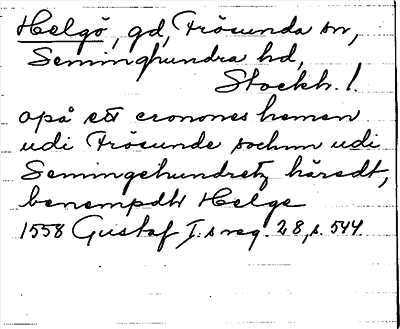 Helgö, gd, Frösunda sn,
Seminghundra hd,
Stockh. l.
opå ett cronones hemen
udi Frösunde sochnn udi
Semingehundretz häredt,
benempdh Helge
1558 Gustaf I:s reg. 28, s. 544.